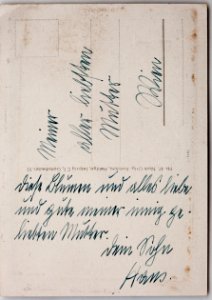 Meiner
aller liebsten
Mutter
Wien
diese Blumen und alles liebe
und gute meiner innig ge-
liebten Mutter.
Dein Sohn
Hans.